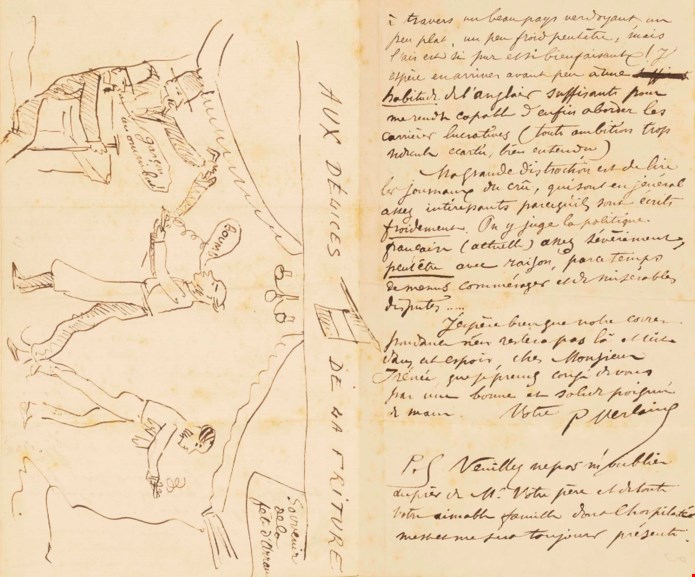 à travers un beau pays verdoyant un
peu plat, un peu froid peutêtre, mais
l'air est si pur et si bienfaisant! J'
espère en arriver avant peu à une
habitude de l'anglais suffisante pour
me rendre capable d'enfin aborder les
carrières lucratives (toute ambition trop
ridicule écartée, bien entendu)
Ma grande distraction est de lire
les journaux du crû, qui sont en général
assez intéressants parcequ'ils sont écrits
froidement. On y juge la politique
française (actuelle) assez sévèrement,
peutêtre avec raison, par ce temps
de menus commérages et de misérables
disputes.....
J'espère bien que votre corres-
pondance n'en restera pas là et c'est
dans cet espoir, cher Monsieur
Irénée que je prends congé de vous
par une bonne et solide poignée
de main. Votre P Verlaine
P.S Veuillez ne pas m'oublier
auprès de Mr. Votre père et de toute
votre aimable famille dont l'hospitalité
me sera toujours présente.
AUX DÉLICES DE LA FRITURE
BOUM!
Souvenir
de la
fête d'